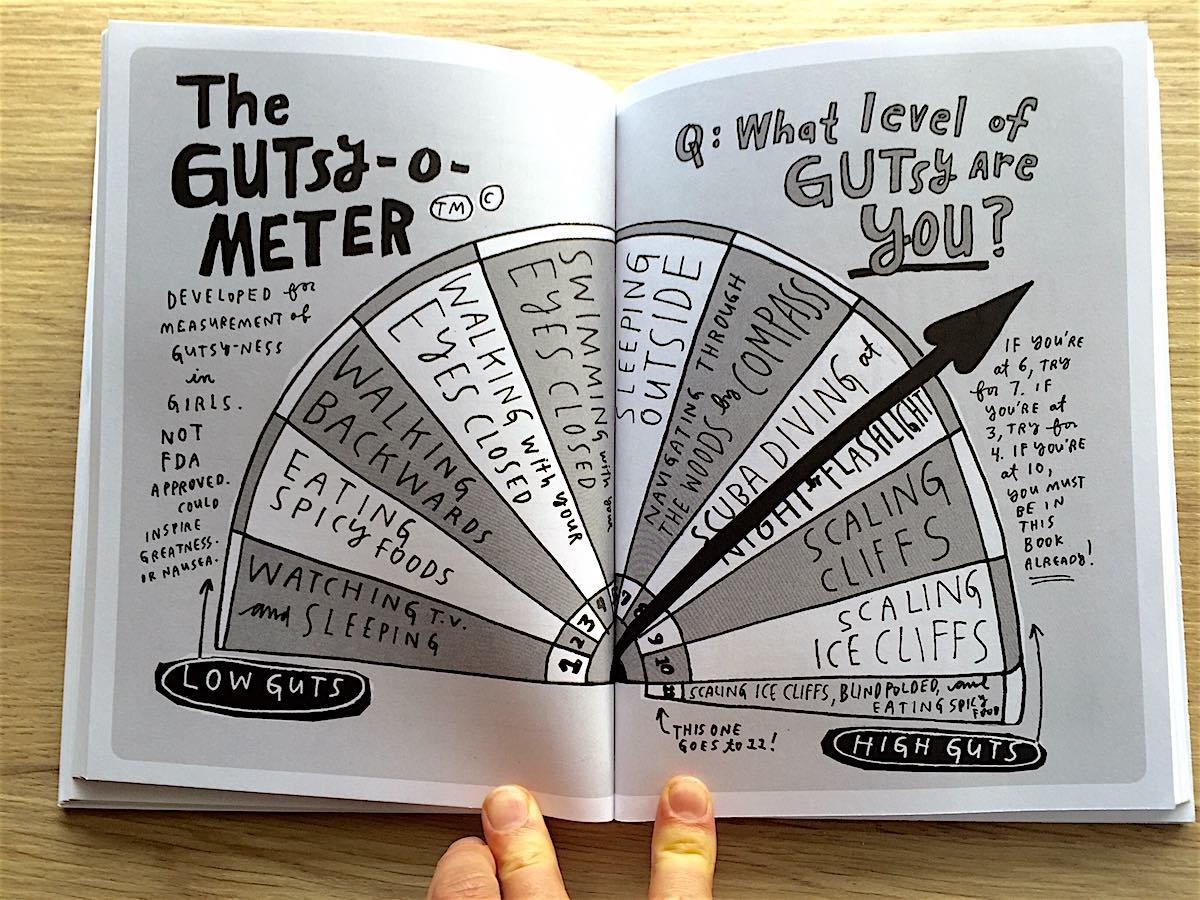 The
GUTSY-O-
METER TM C
DEVELOPED for
MEASUREMENT of
GUTSY-NESS
in
GIRLS.
NOT
FDA
APPROVED.
COULD
INSPIRE
GREATNESS.
OR NAUSEA.
LOW GUTS
WATCHING T.V.
and SLEEPING
1
EATING
SPICY FOODS
2
WALKING
BACKWARDS
3
WALKING with YOUR
EYES CLOSED
4
SWIMMING with your
EYES CLOSED
SLEEPING
OUTSIDE
NAVIGATING THROUGH
THE WOODS by COMPASS
7
SCUBA DIVING at
NIGHT by FLASHLIGHT
8
SCALING
CLIFFS
9
SCALING
ICE CLIFFS
10
SCALING ICE CLIFFS, BLINDFOLDED, and
EATING SPICY
FOOD
11
THIS ONE
GOES to 11!
HIGH GUTS
Q: What level of
GUTSY ARE
YOU?
IF YOU'RE
at 6, TRY
for 7. IF
YOU'RE at
3, TRY for
4. IF YOU'RE
at 10,
YOU MUST
BE IN
THIS
BOOK
ALREADY!